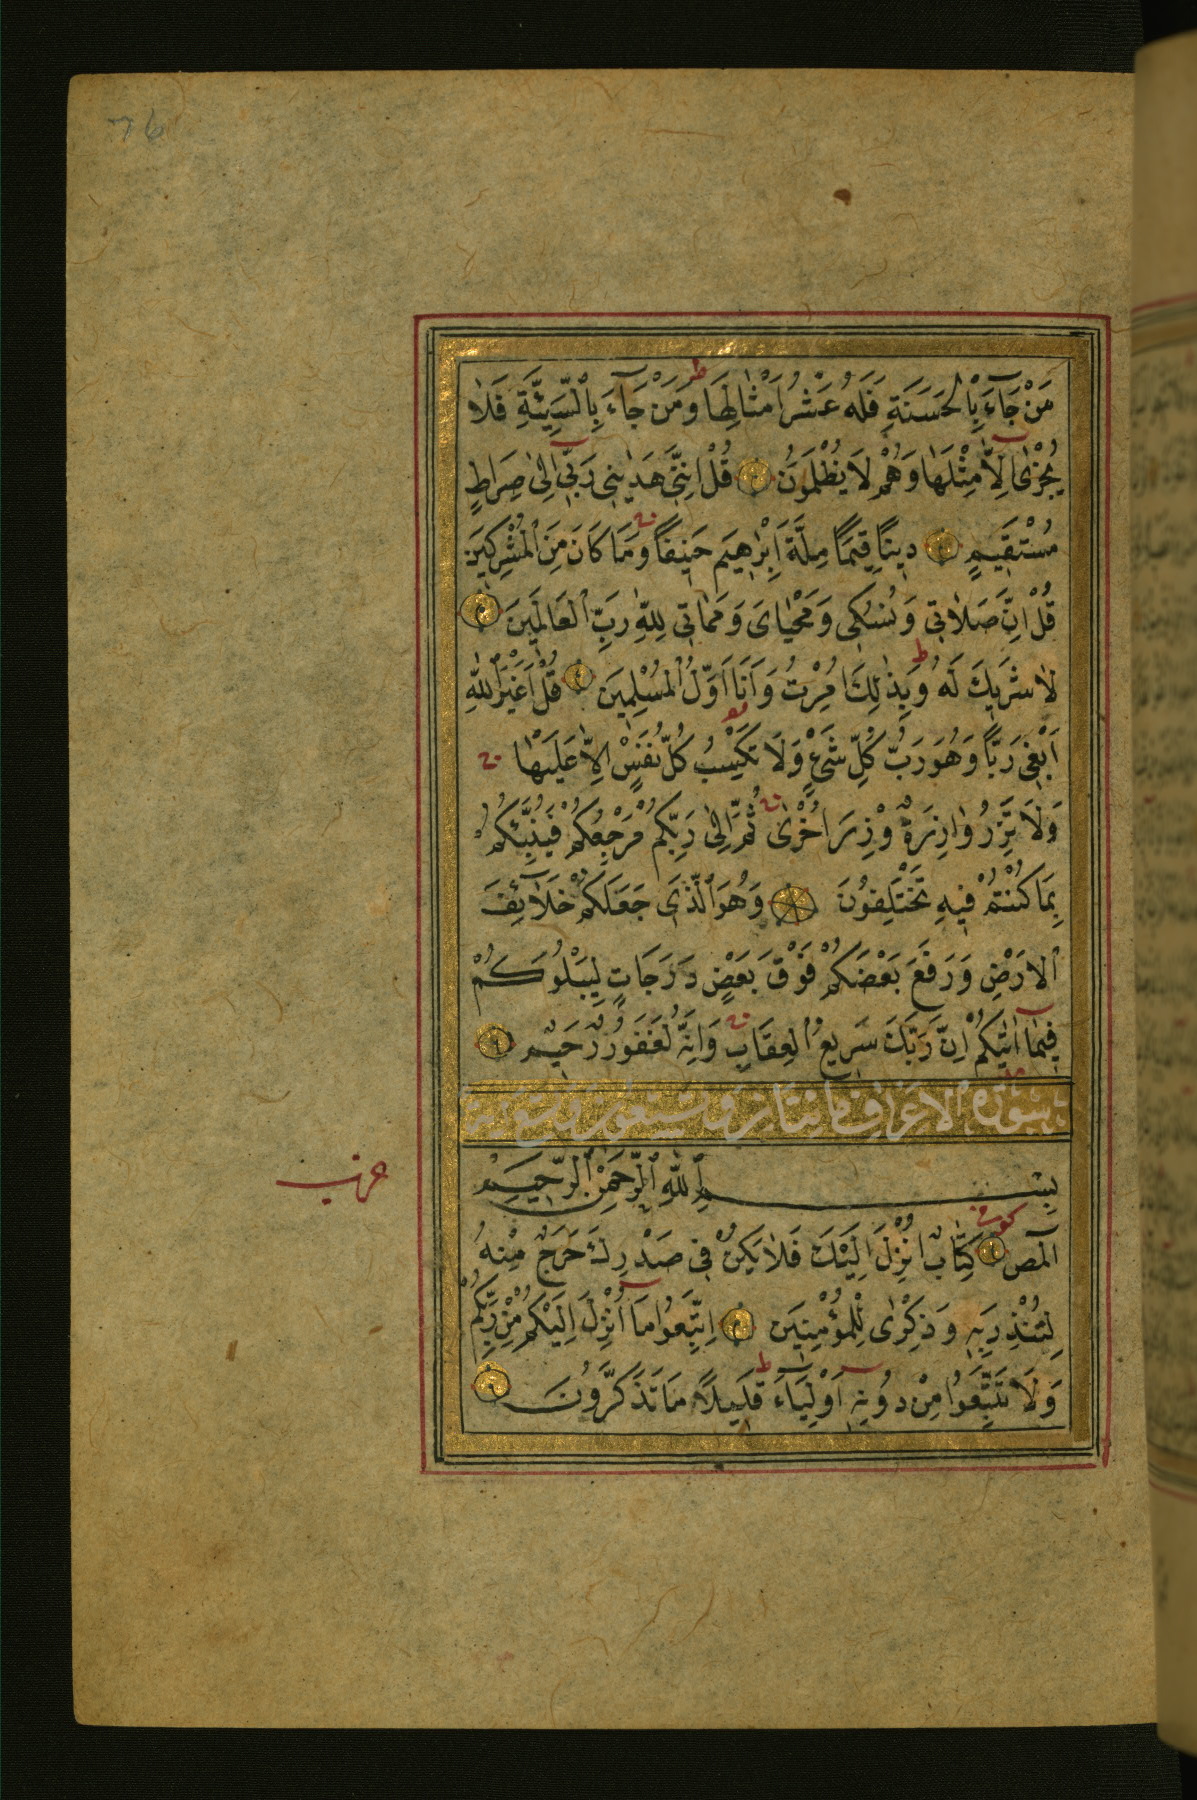 76
مَنْ جَآءَ بِالْحَسَنَةِ فَلَهُ عَشْرُ اَمْثَالِهَا وَمَنْ جَآءَ بِالسَّيِّئَةِ فَلَا
يُجْزٰى اِلَّا مِثْلَهَا وَهُمْ لَا يُظْلَمُونَ قُلْ اِنَّنِى هَدٰينِى رَبِّى اِلٰى صِرَاطٍ
مُسْتَقِيمٍ دِينًا قِيَمًا مِلَّةَ اِبْرٰهِيمَ حَنِيفًا وَمَا كَانَ مِنَ الْمُشْرِكِينَ
قُلْ اِنَّ صَلَاتِى وَنُسُكِى وَمَحْيَاىَ وَمَمَاتِى لِلّٰهِ رَبِّ الْعَالَمِينَ
لَا شَرِيكَ لَهُ وَبِذٰلِكَ اُمِرْتُ وَاَنَا اَوَّلُ الْمُسْلِمِينَ قُلْ اَغَيْرَ اللّٰهِ
اَبْغِى رَبًّا وَهُوَ رَبُّ كُلِّ شَىْءٍ وَلَا تَكْسِبُ كُلُّ نَفْسٍ اِلَّا عَلَيْهَا
وَلَا تَزِرُ وَازِرَةٌ وِزْرَ اُخْرٰى ثُمَّ اِلٰى رَبِّكُمْ مَرْجِعُكُمْ فَيُنَبِّئُكُمْ
بِمَا كُنْتُمْ فِيهِ تَخْتَلِفُونَ وَهُوَ الَّذِى جَعَلَكُمْ خَلَآئِفَ
الْاَرْضِ وَرَفَعَ بَعْضَكُمْ فَوْقَ بَعْضٍ دَرَجَاتٍ لِيَبْلُوَكُمْ
فِيمَآ اٰتٰيكُمْ اِنَّ رَبَّكَ سَرِيعُ الْعِقَابِ وَاِنَّهُ لَغَفُورٌ رَحِيمٌ
سورة الاعراف مائتان و
بِسْمِ اللّٰهِ الرَّحْمٰنِ الرَّحِيمِ
الٓمٓصٓ كِتَابٌ اُنْزِلَ اِلَيْكَ فَلَا يَكُنْ فِى صَدْرِكَ حَرَجٌ مِنْهُ
لِتُنْذِرَ بِهِ وَذِكْرٰى لِلْمُؤْمِنِينَ اِتَّبِعُوا مَآ اُنْزِلَ اِلَيْكُمْ مِنْ رَبِّكُمْ
وَلَا تَتَّبِعُوا مِنْ دُونِهِ اَوْلِيَآءَ قَلِيلًا مَا تَذَكَّرُونَ